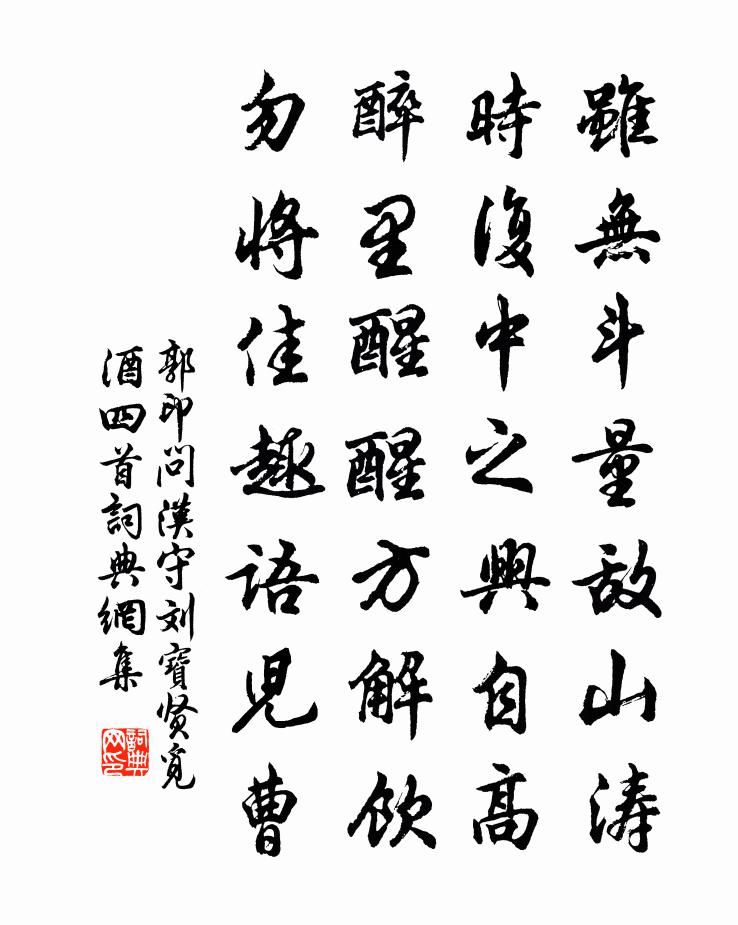 雖無斗量敌山涛
時復中之興自高
醉里醒醒方解飲
勿將佳趣語兒曹
郭印問漢守刘寶贤覓
酒四首詞典網集
詞典网印